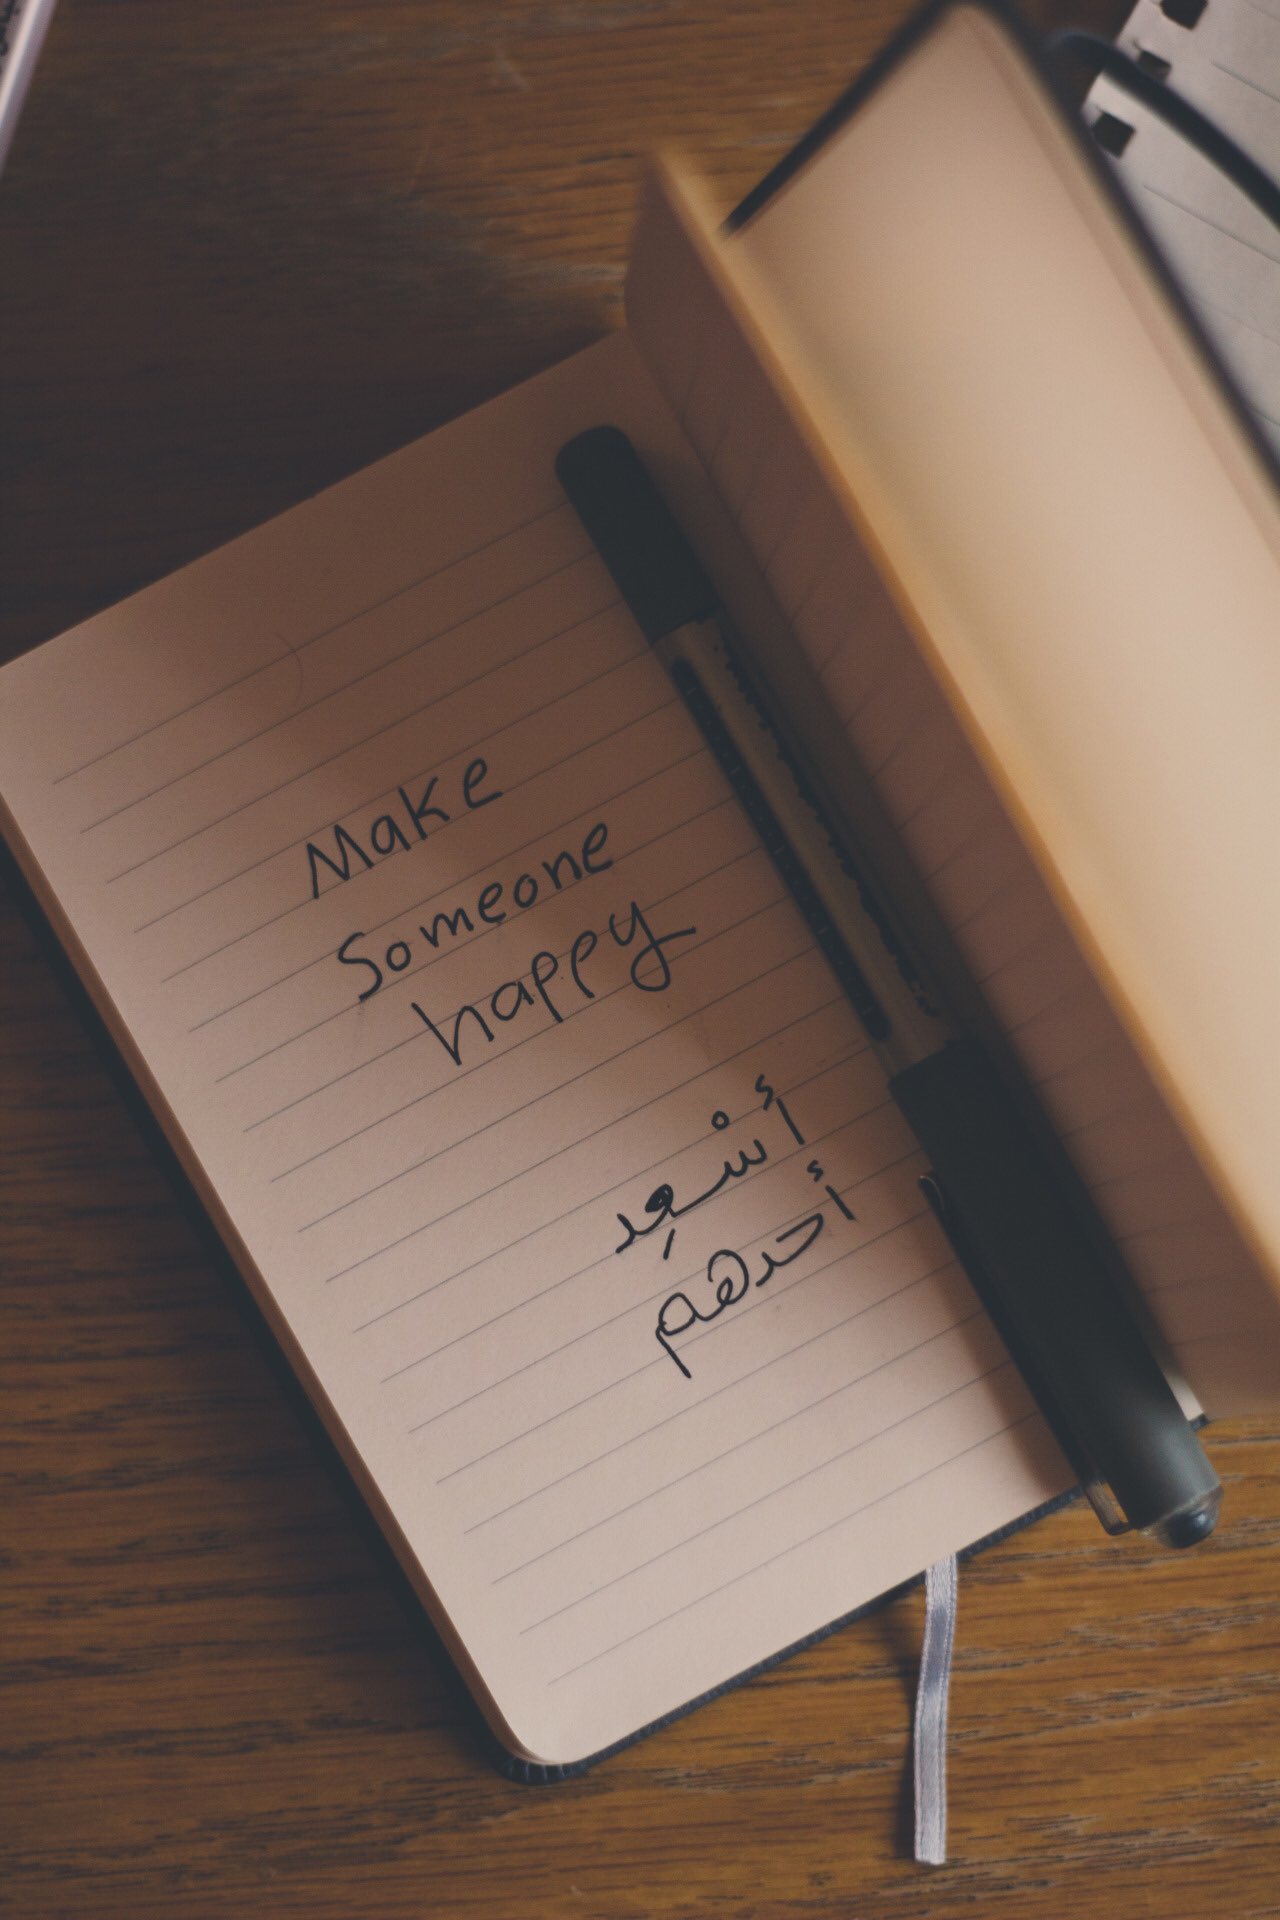 Make
Someone
happy
أسْعِد
أحدهم